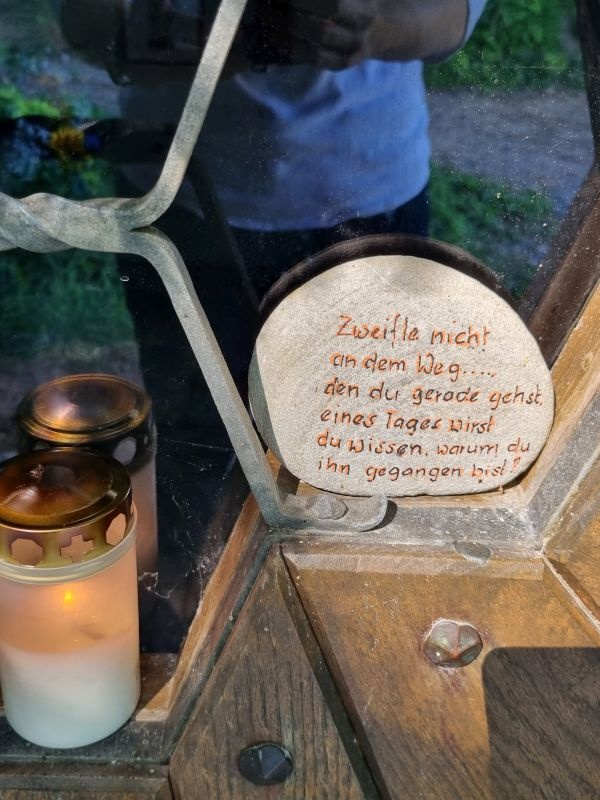 Zweifle nicht
an dem Weg.....,
den du gerade gehst,
eines Tages wirst
du wissen, warum du
ihn gegangen bist!